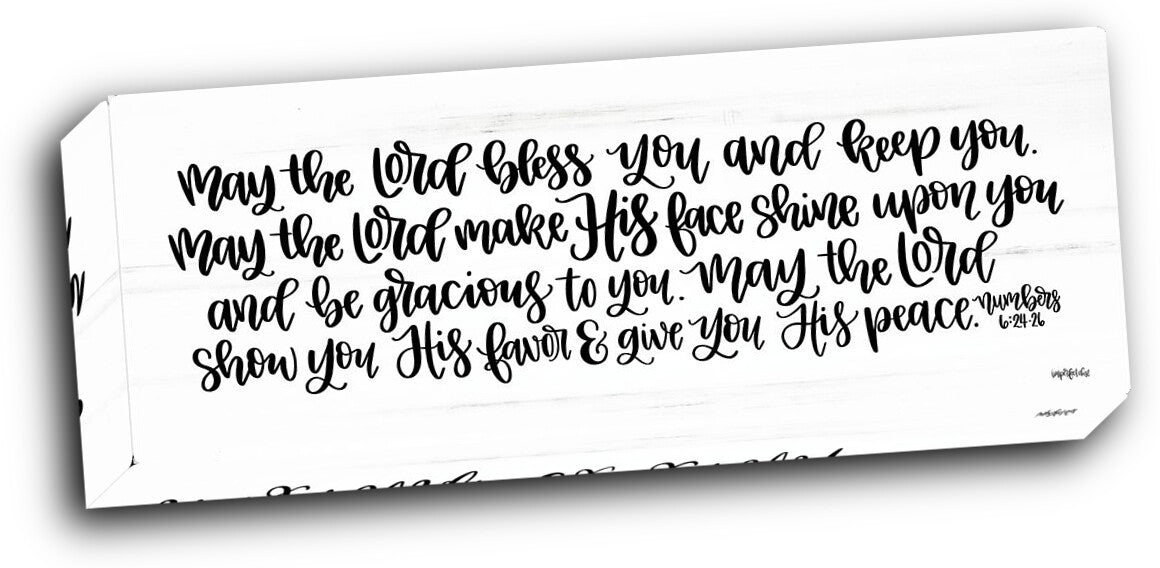 May the Lord bless you and keep you.
May the Lord make His face shine upon you
and be gracious to you. May the Lord
show you His favor & give you His peace. Numbers
6:24-26
imperfect dust